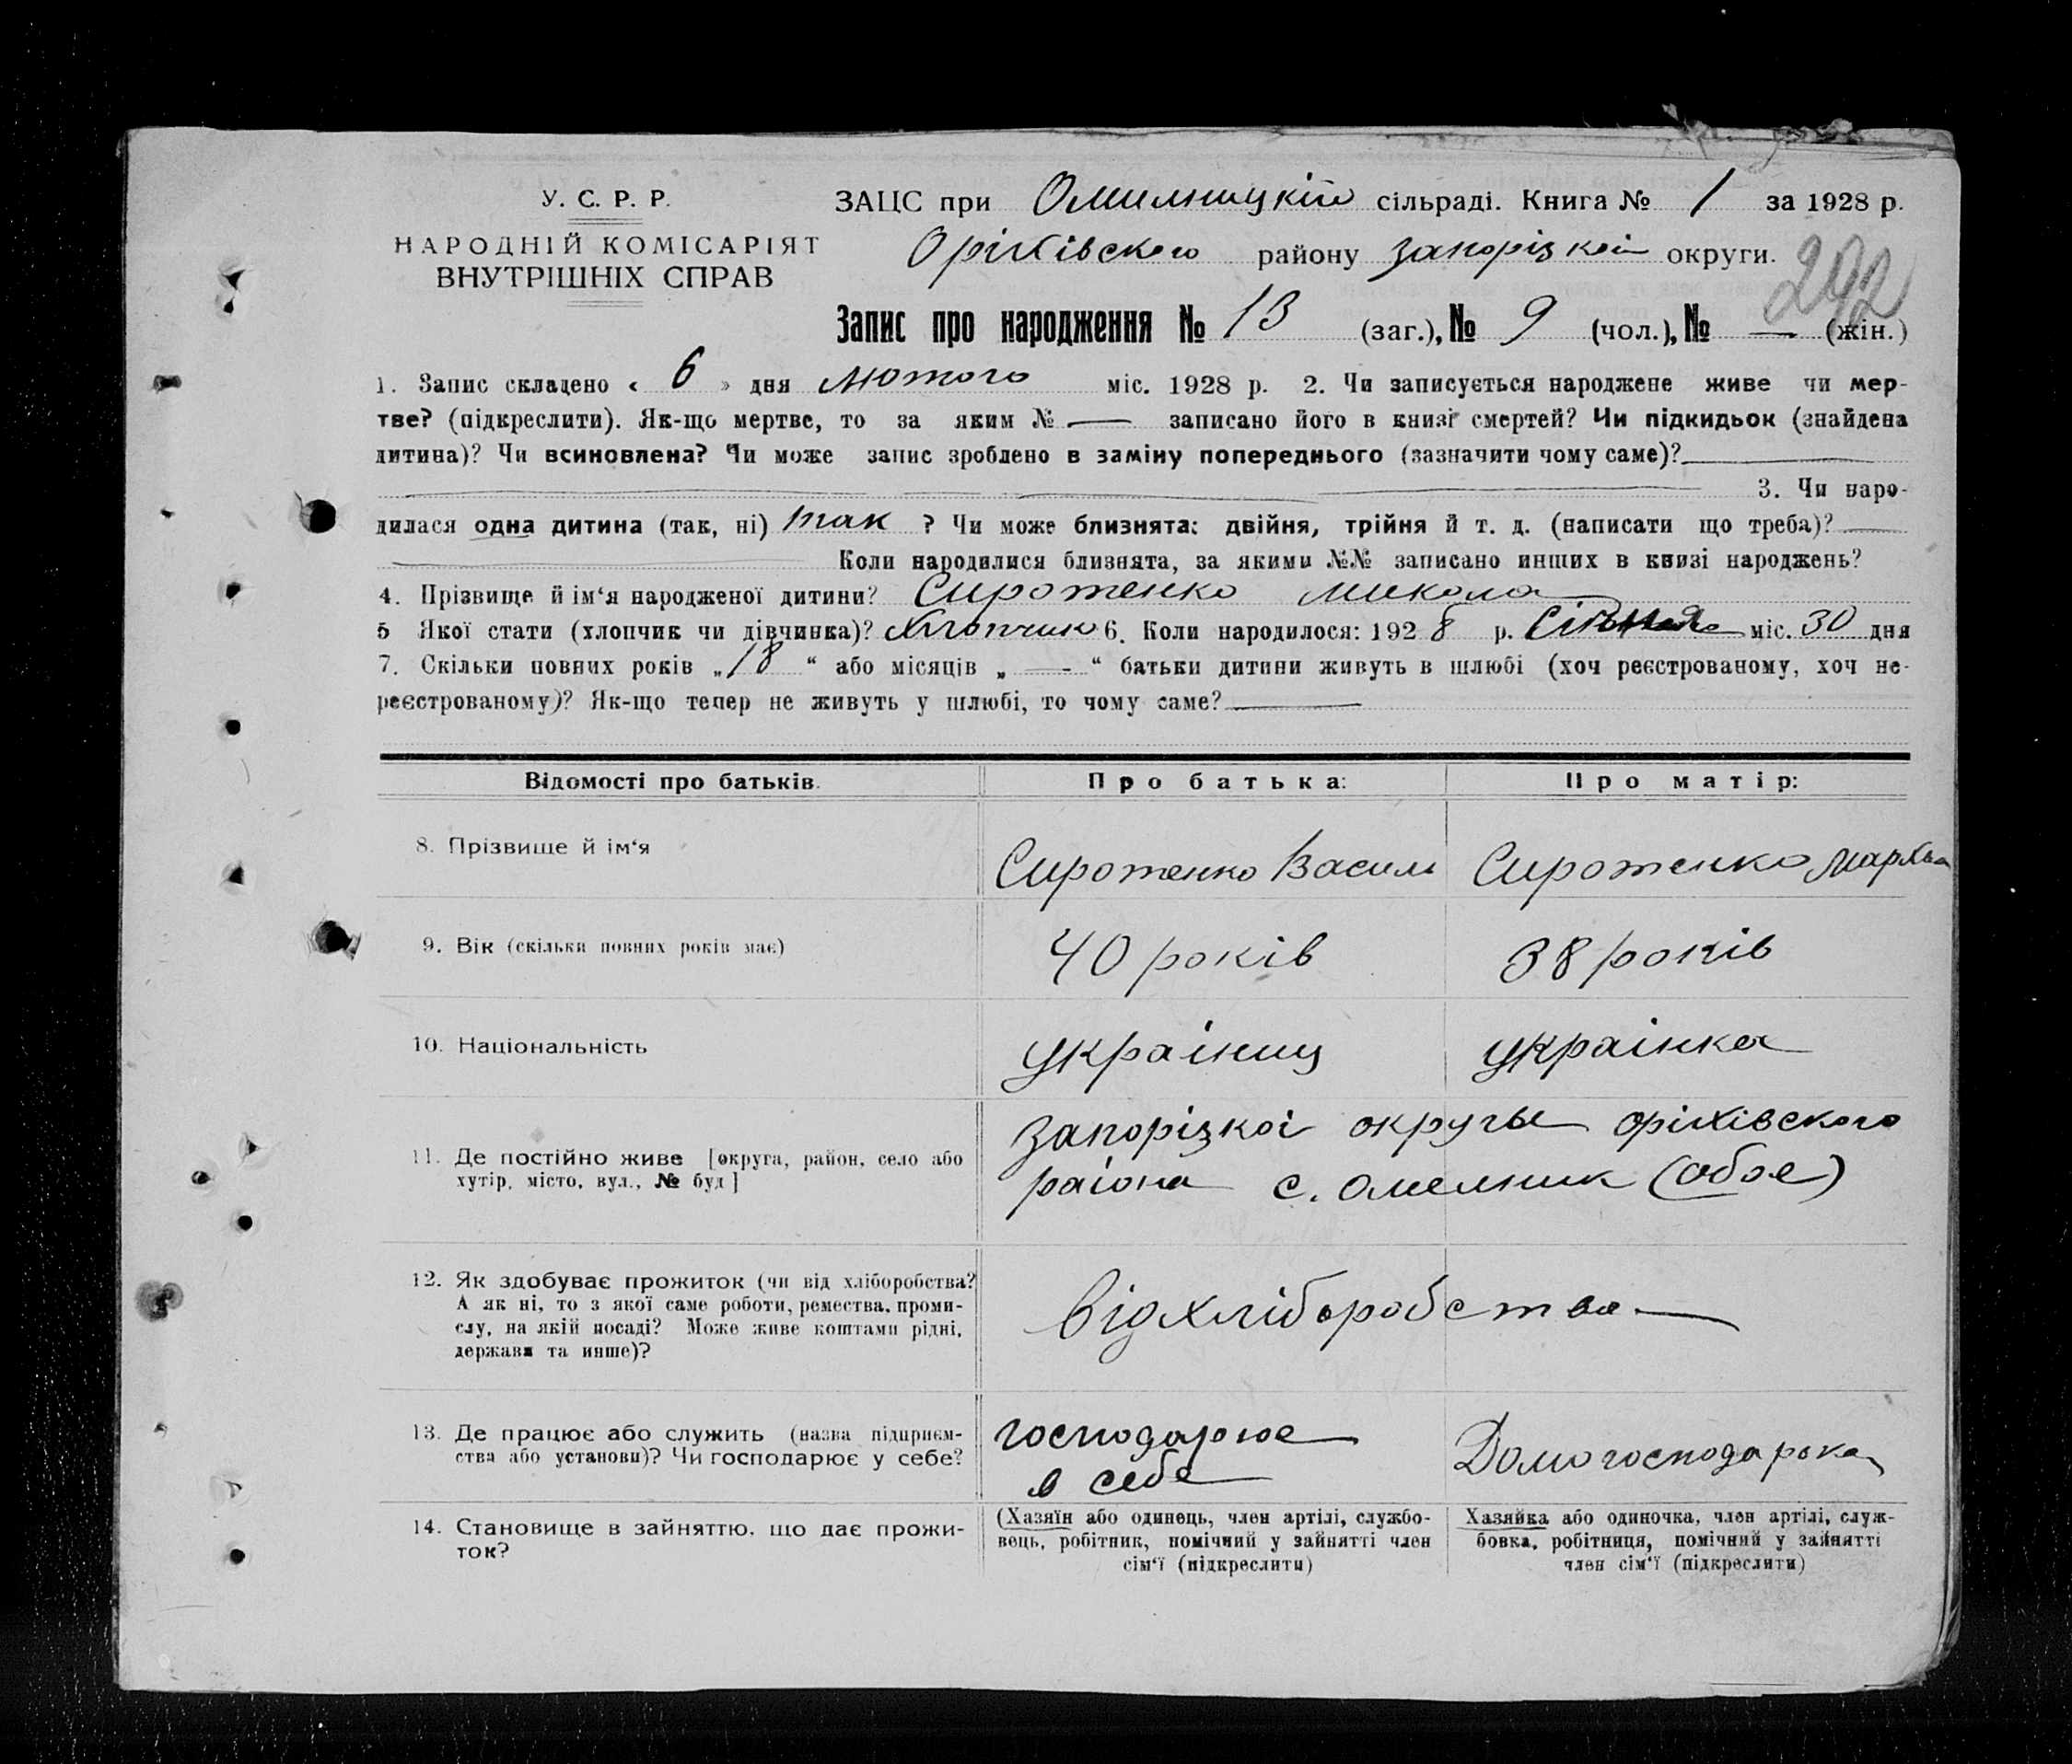 У. С. Р. Р.
НАРОДНІЙ КОМІСАРІЯТ
ВНУТРІШНІХ СПРАВ
ЗАЦС при Омильницкій сільраді. Книга № 1 за 1928 р.
Оріхівского району Запорізкоі округи.
292
Запис про народження № 13 (заг.), № 9 (чол.), № — (жін.)
1. Запис складено « 6 » дня Лютого міс. 1928 р. 2. Чи записується народжене живе чи мер-
тве? (підкреслити). Як-що мертве, то за яким № — записано його в книзі смертей? Чи підкидьок (знайдена
дитина)? Чи всиновлена? Чи може запис зроблено в заміну попереднього (зазначити чому саме)? —
3. Чи наро-
дилася одна дитина (так, ні) так ? Чи може близнята: двійня, трійня й т. д. (написати що треба)? —
Коли народилися близнята, за якими №№ записано инших в книзі народжень?
4. Прізвище й ім‘я народженої дитини? Сиротенко Микола
5 Якої стати (хлопчик чи дівчинка)? Хлопчик 6. Коли народилося: 1928 р. Січня міс. 30 дня
7. Скільки повних років „ 18 “ або місяців „ — “ батьки дитини живуть в шлюбі (хоч реєстрованому, хоч не-
реєстрованому)? Як-що тепер не живуть у шлюбі, то чому саме? —
Відомості про батьків. Про батька: Про матір:
8. Прізвище й ім‘я Сиротенко Василь Сиротенко Марфа
9. Вік (скільки повних років має) 40 років 38 років
10. Національність украінец украінка
11. Де постійно живе [округа, район, село або
хутір, місто, вул., № буд]
Запорізкоі округы Оріхівского
раіона с. Омельник (обое)
12. Як здобуває прожиток (чи від хліборобства?
А як ні, то з якої саме роботи, ремества, проми-
слу, на якій посаді? Може живе коштами рідні,
держави та инше)?
від хліборобства
13. Де працює або служить (назва підприєм-
ства або установи)? Чи господарює у себе?
господарюе
в себе
Домогосподарка
14. Становище в зайняттю, що дає прожи-
ток?
(Хазяїн або одинець, член артілі, службо-
вець, робітник, помічний у зайнятті член
сім‘ї (підкреслити)
Хазяйка або одиночка, член артілі, служ-
бовка, робітниця, помічний у зайнятті
член сім‘ї (підкреслити)